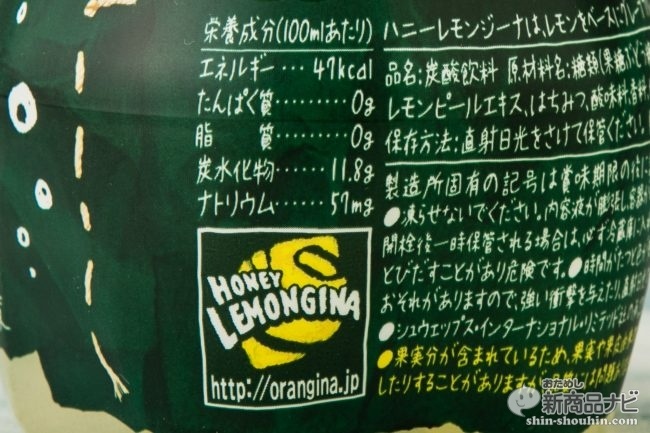 栄養成分(100mlあたり)
エネルギー…47kcal
たんぱく質………0g
脂 質………0g
炭水化物……11.8g
ナトリウム……57mg
HONEY
LEMONGINA
http://orangina.jp
ハニーレモンジーナは、レモンをベースに
品名:炭酸飲料 原材料名:糖類(果糖ぶどう
レモンピールエキス、はちみつ、酸味料、香料
保存方法:直射日光をさけて保管ください。
製造所固有の記号は賞味期限の
●凍らせないでください。内容液が膨張し、容器が
開栓後一時保管される場合は、必ず冷蔵庫に入
とびだすことがあり危険です。●時間がたつと色
おそれがありますので、強い衝撃を与えたり、直射
●シュウェップス・インターナショナル・リミテッド社の
●果実分が含まれているため、果実や果皮
したりすることがありますが、品質には問題
おためし
新商品ナビ
shin-shouhin.com